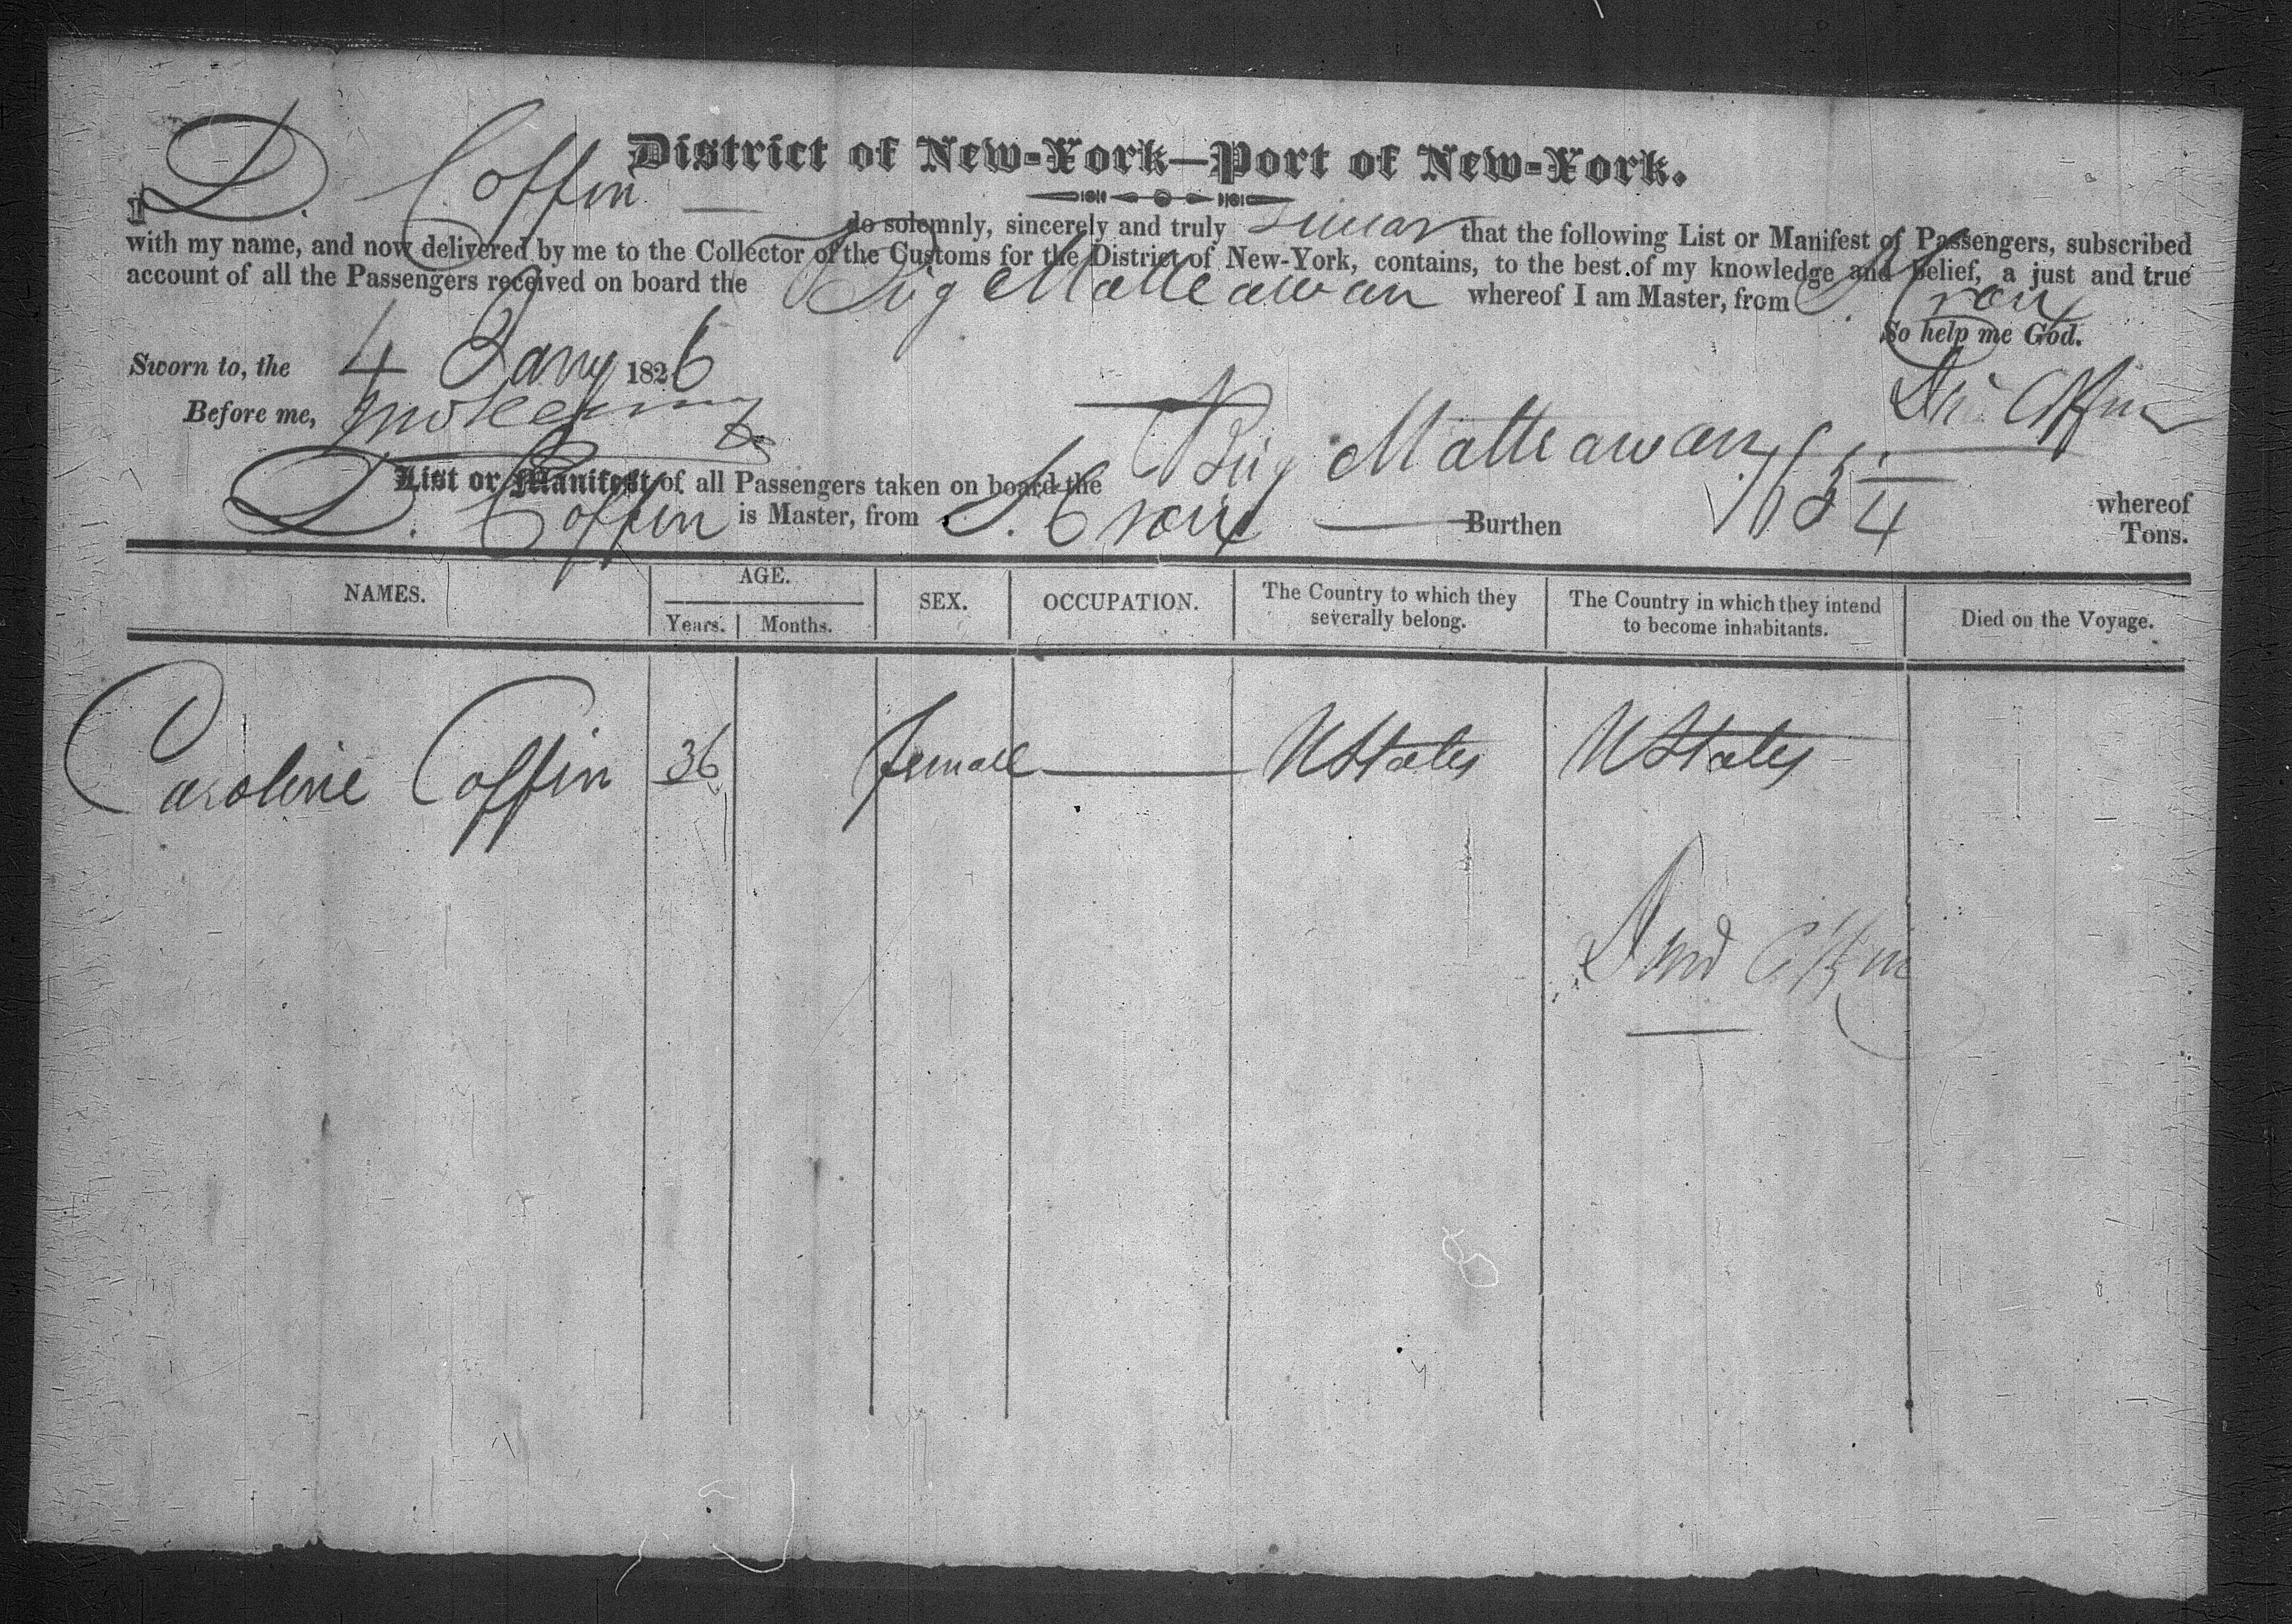 District of New-York—Port of New-York.
I D. Coffin do solemnly, sincerely and truly swear that the following List or Manifest of Passengers, subscribed
with my name, and now delivered by me to the Collector of the Customs for the District of New-York, contains, to the best of my knowledge and belief, a just and true
account of all the Passengers received on board the Brig Matteawan whereof I am Master, from S. Croix
So help me God.
Sworn to, the 4 Jany 1826
Before me,
Coffin
List or Manifest of all Passengers taken on board the Brig Matteawan whereof
D. Coffin is Master, from S. Croix Burthen Tons.
NAMES. AGE. Years. Months. SEX. OCCUPATION. The Country to which they severally belong. The Country in which they intend to become inhabitants. Died on the Voyage.
Caroline Coffin 36 female UStates UStates
Coffin